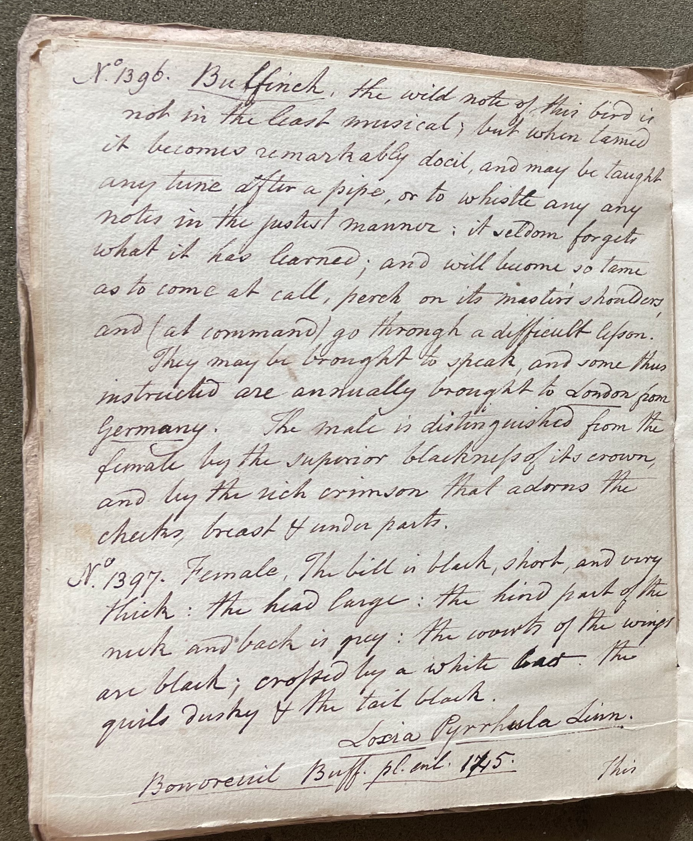 No. 1396. Bulfinch, the wild note of this bird is
not in the least musical; but when tamed
it becomes remarkably docil, and may be taught
any tune after a pipe, or to whistle any any
notes in the justest manner: it seldom forgets
what it has learned; and will become so tame
as to come at call, perch on its master's shoulders,
and (at command) go through a difficult lesson.
They may be brought to speak, and some thus
instructed are annually brought to London from
Germany. The male is distinguished from the
female by the superior blackness of its crown,
and by the rich crimson that adorns the
cheeks, breast & under parts.
No. 1397. Female, The bill is black, short, and very
thick: the head large: the hind part of the
neck and back is grey: the coverts of the wings
are black; crossed by a white bar. the
quils dusky & the tail black.
Loxia Pyrrhula Linn.
Bouvreuil Buff. pl. enl. 145.
This